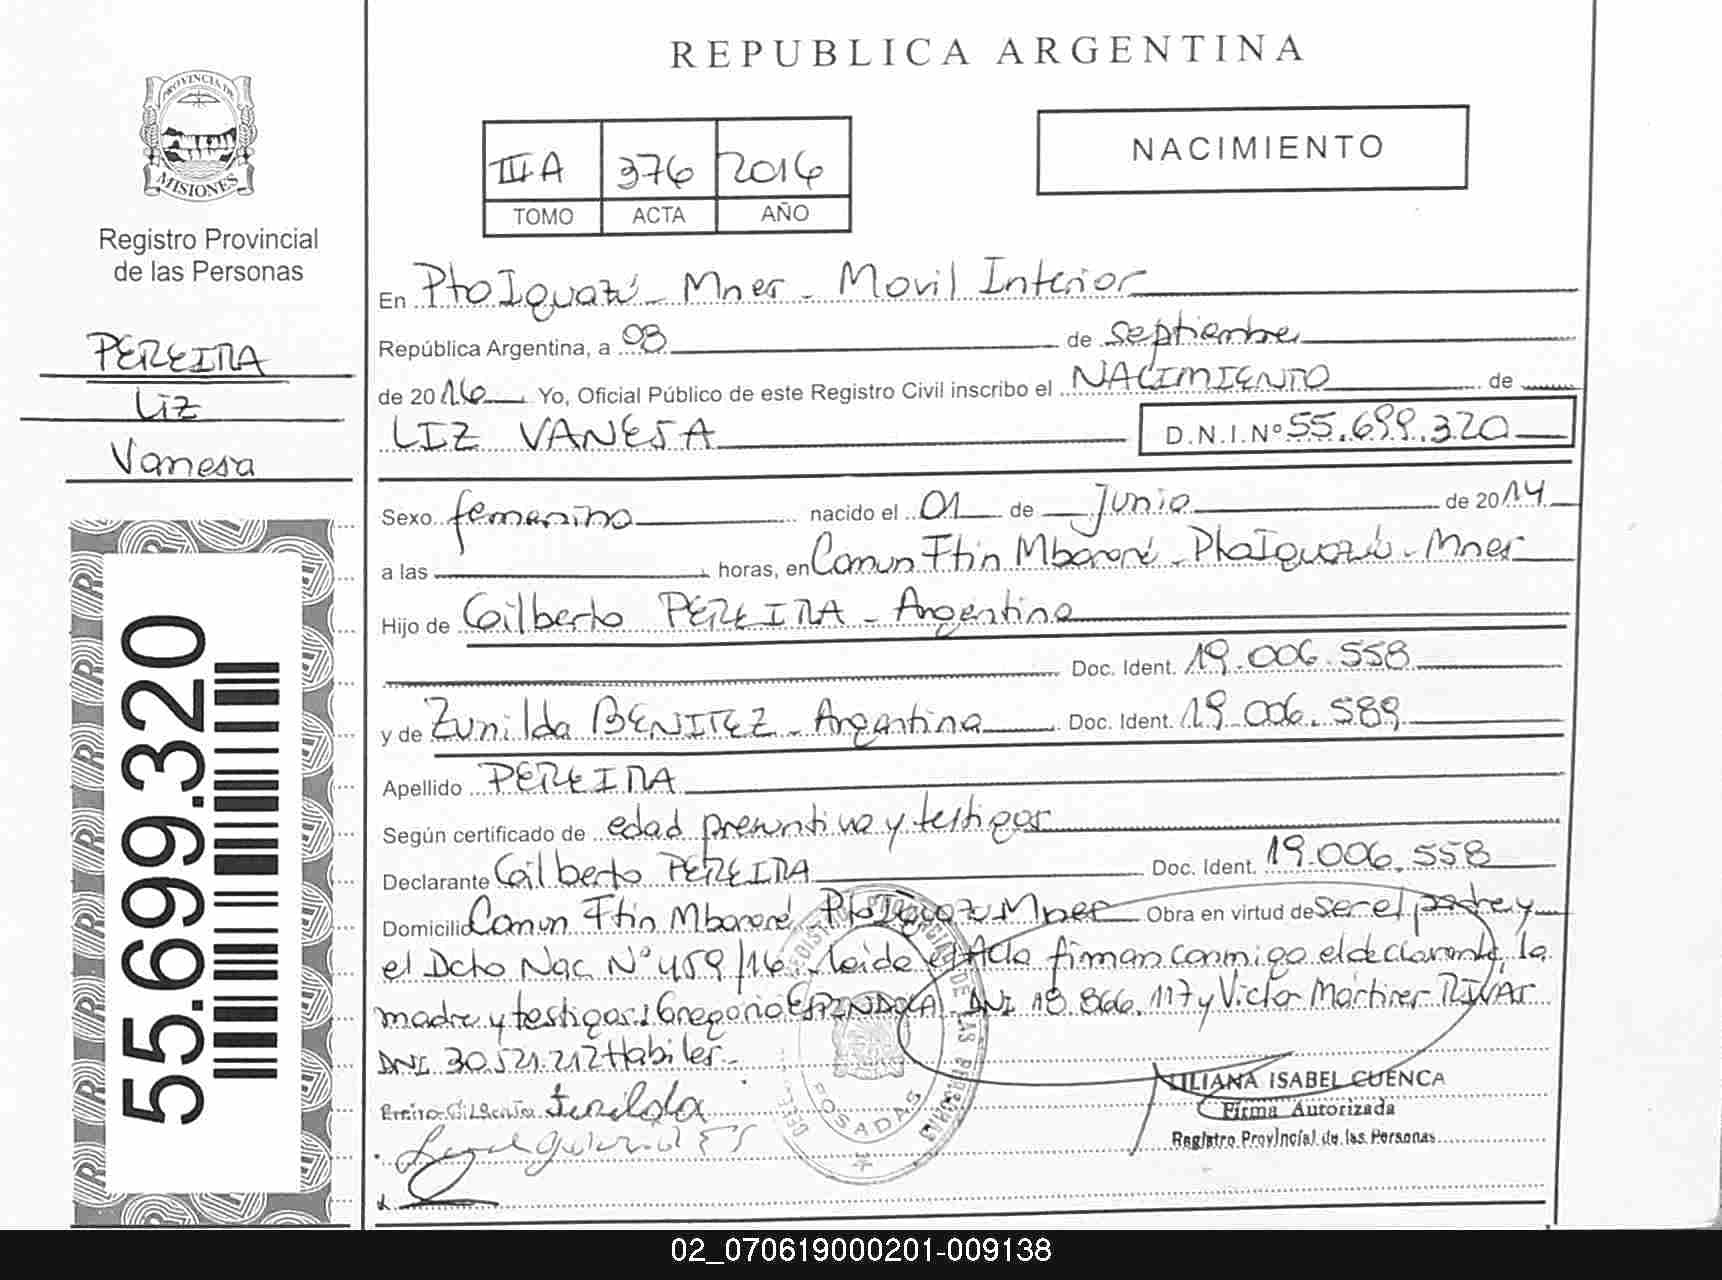 REPUBLICA ARGENTINA
PROVINCIA DE
MISIONES
Registro Provincial
de las Personas
PEREIRA
Liz
Vanesa
55.699.320
III A 376 2016
TOMO ACTA AÑO
NACIMIENTO
En Pto Iguazú - Mnes - Movil Interior
República Argentina, a 08 de septiembre
de 2016 Yo, Oficial Público de este Registro Civil inscribo el NACIMIENTO de
LIZ VANESA D.N.I.Nº 55.699.320
Sexo femenino nacido el 01 de Junio de 2014
a las horas, en Comun Ftin Mbororé - Pto Iguazú - Mnes
Hijo de Gilberto PEREIRA - Argentino
Doc. Ident. 19.006.558
y de Zunilda BENITEZ - Argentina Doc. Ident. 19.006.589
Apellido PEREIRA
Según certificado de edad presuntiva y testigos
Declarante Gilberto PEREIRA Doc. Ident. 19.006.558
Domicilio Comun Ftin Mbororé Pto Iguazú Mnes Obra en virtud de ser el padre y
el Dcto Nac Nº 459/16 - Leida el Acta firman conmigo el declarante, la
madre y testigos: Gregorio ESPINDOLA DNI 18.866.117 y Victor Martinez RIVAS
DNI 30.521.212 Habiles.-
POSADAS
LILIANA ISABEL CUENCA
Firma Autorizada
Registro Provincial de las Personas
02_070619000201-009138